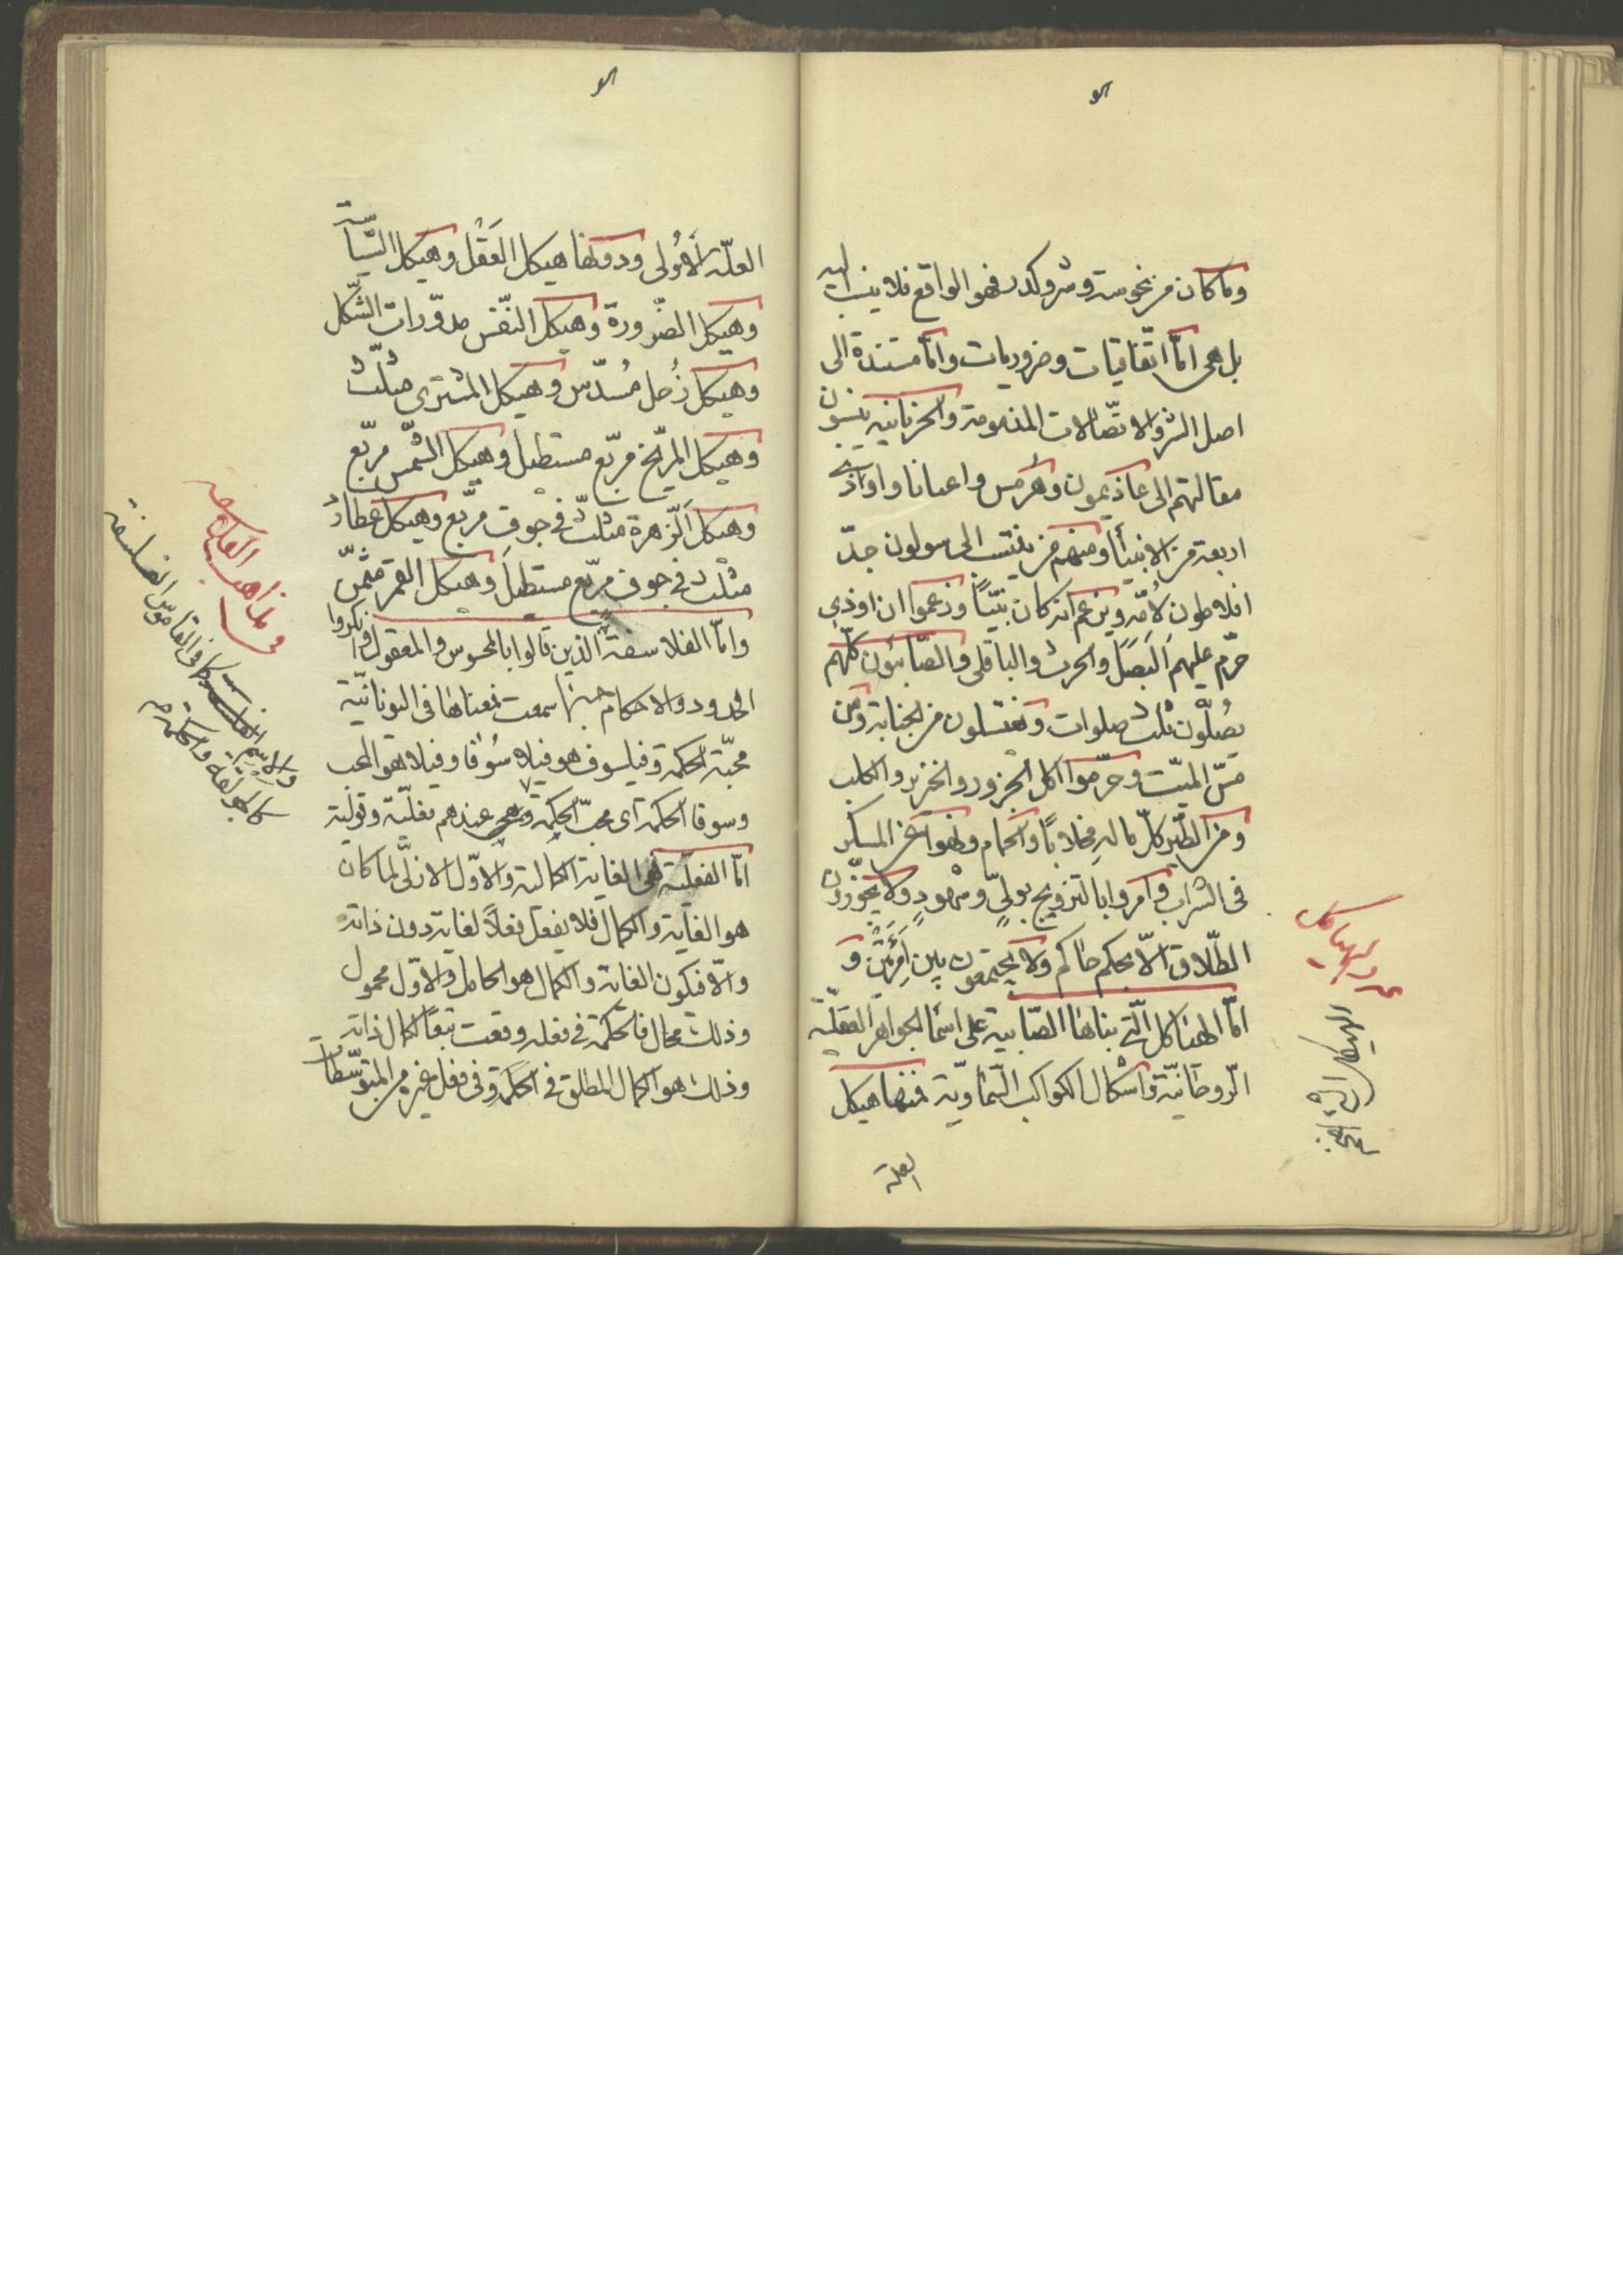 وما كان من نحوسة وشر وكدر فهو الواقع فلا ينسب اليه
بل هى امّا اتّفاقيات وضروريات وامّا مستندة الى
اصل الشر والاتّصالات المذمومة والحرنانية ينسبون
مقالتهم الى عاذيمون وهرمس واعيانا واواذى
اربعة من الانبيآء ومنهم من ينتسب الى سولون جدّ
افلاطون لأمّه ويزعم انه كان نبيّاً وزعموا ان اوذى
حرّم عليهم البَصَل والحرث والباقلى والصّابئون كلّهم
يصلّون ثلث صلوات ويغتسلون من الجنابة ومن
مسّ الميّت وحرّموا اكل الجزور والخنزير والكلب
ومن الطّير كلّ ما له مخلاباً والحمام ونهوا عن المسكر
فى الشراب وامروا بالتزويج بولىٍّ وشهودٍ ولا يجوّزون
الطّلاق الّا بحكم حاكم ولا يجتمعون بين امرئتين و
امّا الهياكل الّتى بناها الصّابية على اسمآ الجواهر العقليّة
الرّوحانيّة واشكال الكواكب السّماويّة فمنها هيكل
العلة
الهياكل التى
العلّة الأولى ودونها هيكل العَقْل وهيكل السّياسة
وهيكل الضّرورة وهيكل النّفس مدوّرات الشّكل
وهيكل زُحل مُسدّس وهيكل المشترى مثلّث
وهيكل المرّيخ مربّع مستطيل وهيكل الشّمس مربّع
وهيكل الزّهرة مثلّث فى جوف مربّع وهيكل عطارد
مثلّث فى جوف مربّع مستطيل وهيكل القمر مثمّن
وامّا الفلاسفة الذين قالوا بالمحسوس والمعقول وانكروا
الحدود والاحكام سمعت معناها فى اليونانيّة
محبّة الحكمة وفيلسوف هو فيلاسُوفا وفيلا هو المحب
وسوفا الحكمة اى محبّ الحكمة وهى عندهم فعليّة وقولية
امّا الفعليّة فهى الغاية الكمالية والاوّل الازلىّ لما كان
هو الغاية والكمال فلا يفعل فعلاً لغاية دون ذاته
والّا فيكون الغاية والكمال هو الحامل والاوّل محمول
وذلك محال فالحكمة فى فعله وقعت تبعاً لكمال ذاته
وذلك هو الكمال المطلق فى الحكمة وفى فعل غيره من المتوسّطات